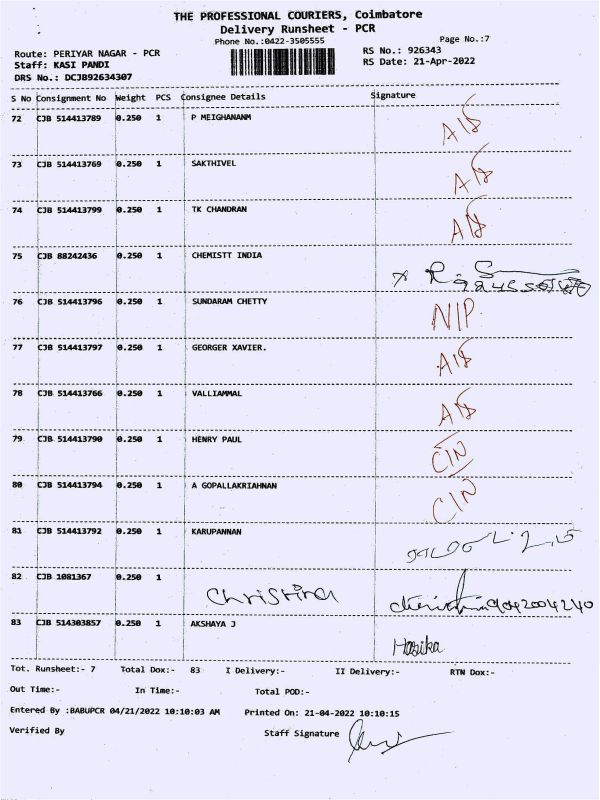 THE PROFESSIONAL COURIERS, Coimbatore
Delivery Runsheet - PCR
Phone No.:0422-3505555
Page No.:7
Route: PERIYAR NAGAR - PCR
RS No.: 926343
Staff: KASI PANDI
RS Date: 21-Apr-2022
DRS No.: DCJB92634307
S No Consignment No Weight PCS Consignee Details Signature
72 CJB 514413789 0.250 1 P MEIGHANANM
73 CJB 514413769 0.250 1 SAKTHIVEL
74 CJB 514413799 0.250 1 TK CHANDRAN
75 CJB 88242436 0.250 1 CHEMISTT INDIA
76 CJB 514413796 0.250 1 SUNDARAM CHETTY NIP
77 CJB 514413797 0.250 1 GEORGER XAVIER.
78 CJB 514413766 0.250 1 VALLIAMMAL
79 CJB 514413790 0.250 1 HENRY PAUL CIN
80 CJB 514413794 0.250 1 A GOPALLAKRIAHNAN CIN
81 CJB 514413792 0.250 1 KARUPANNAN
82 CJB 1081367 0.250 1 Christina 9042004240
83 CJB 514303857 0.250 1 AKSHAYA J Hasika
Tot. Runsheet:- 7 Total Dox:- 83 I Delivery:- II Delivery:- RTN Dox:-
Out Time:- In Time:- Total POD:-
Entered By :BABUPCR 04/21/2022 10:10:03 AM Printed On: 21-04-2022 10:10:15
Verified By Staff Signature